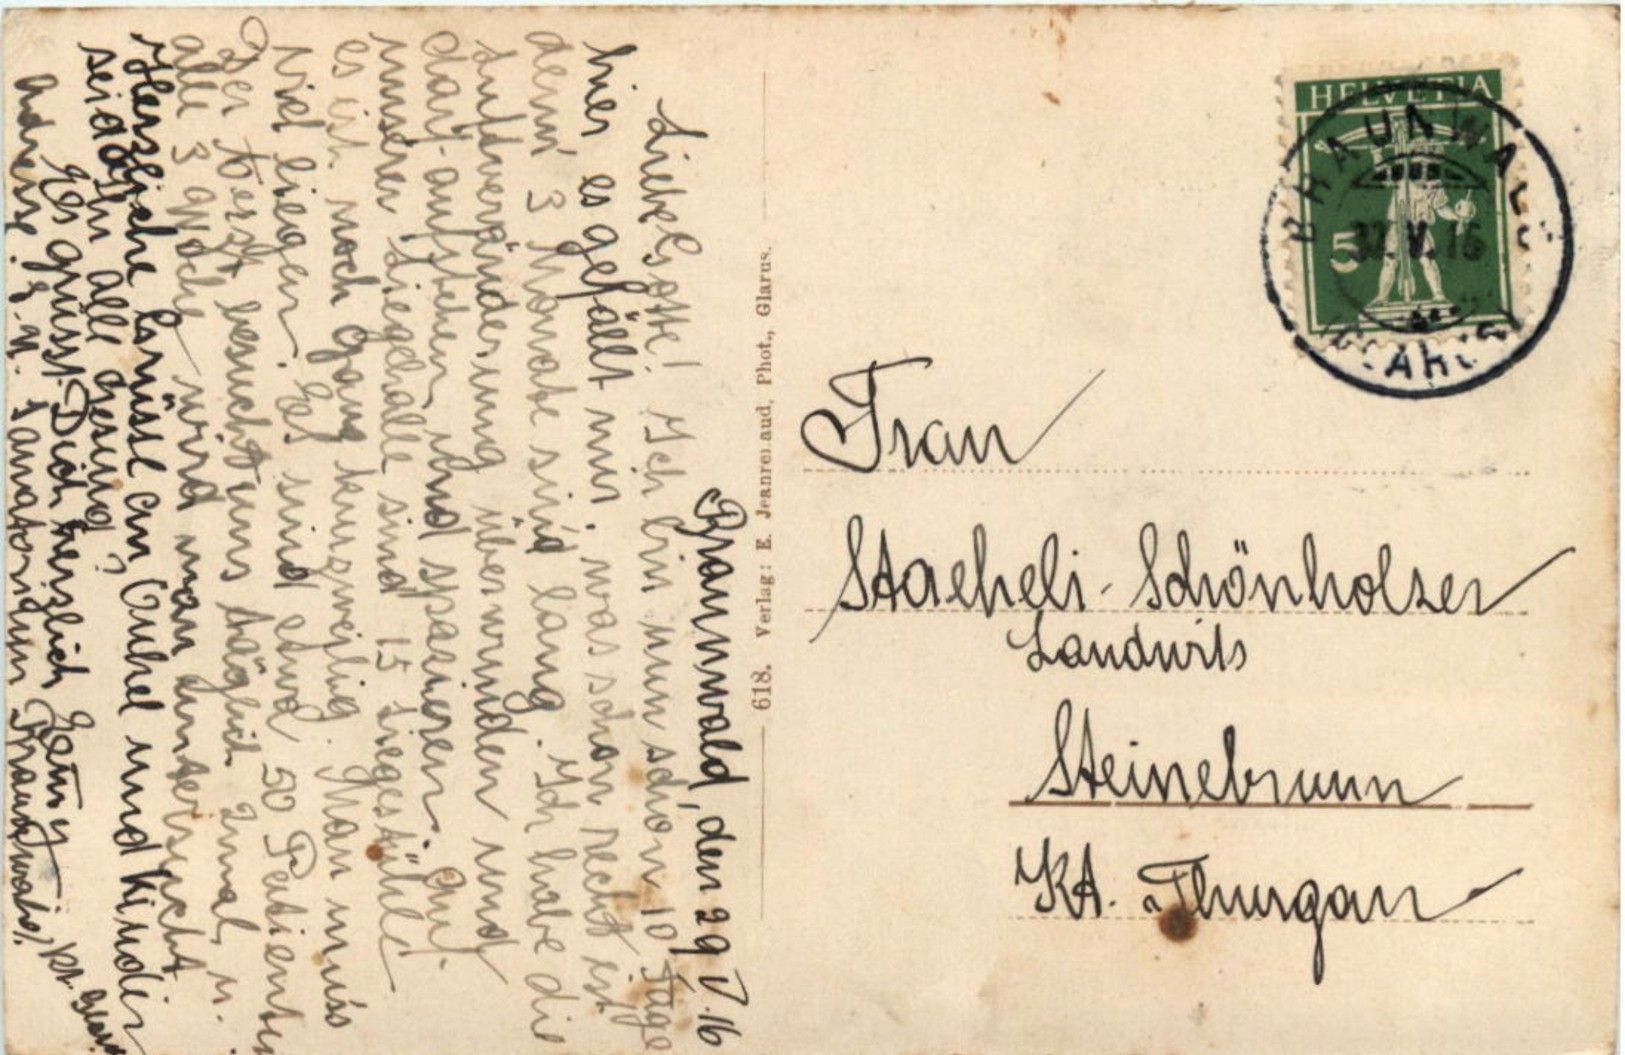 Braunwald, den 29.V.16
Liebe Gotte! Ich bin nun schon 10 Tage
hier es gefällt mir, was schon recht ist
denn 3 Monate sind lang. Ich habe die
Luftveränderung überwunden und
darf aufstehen und spazieren. Auf
unserer Liegehalle sind 15 Liegestühle
es ist noch ganz kurzweilig. Man muss
viel liegen. Es sind etwa 50 Patienten
Der Arzt besucht uns täglich 2mal, u.
alle 3 Woche wird man untersucht
Herzliche Grüsse an Onkel und Kinder
seid Ihr all gesund?
Es grüsst Dich herzlich
Adresse: z. Z. Sanatorium Braunwald, Kt. Glarus
618. Verlag: E. Jeanrenaud, Phot., Glarus.
HELVETIA
5
BRAUNWALD
31.V.16
(GLARUS)
Frau
Staeheli-Schönholzer
Landwirts
Steinebrunn
Kt. Thurgau